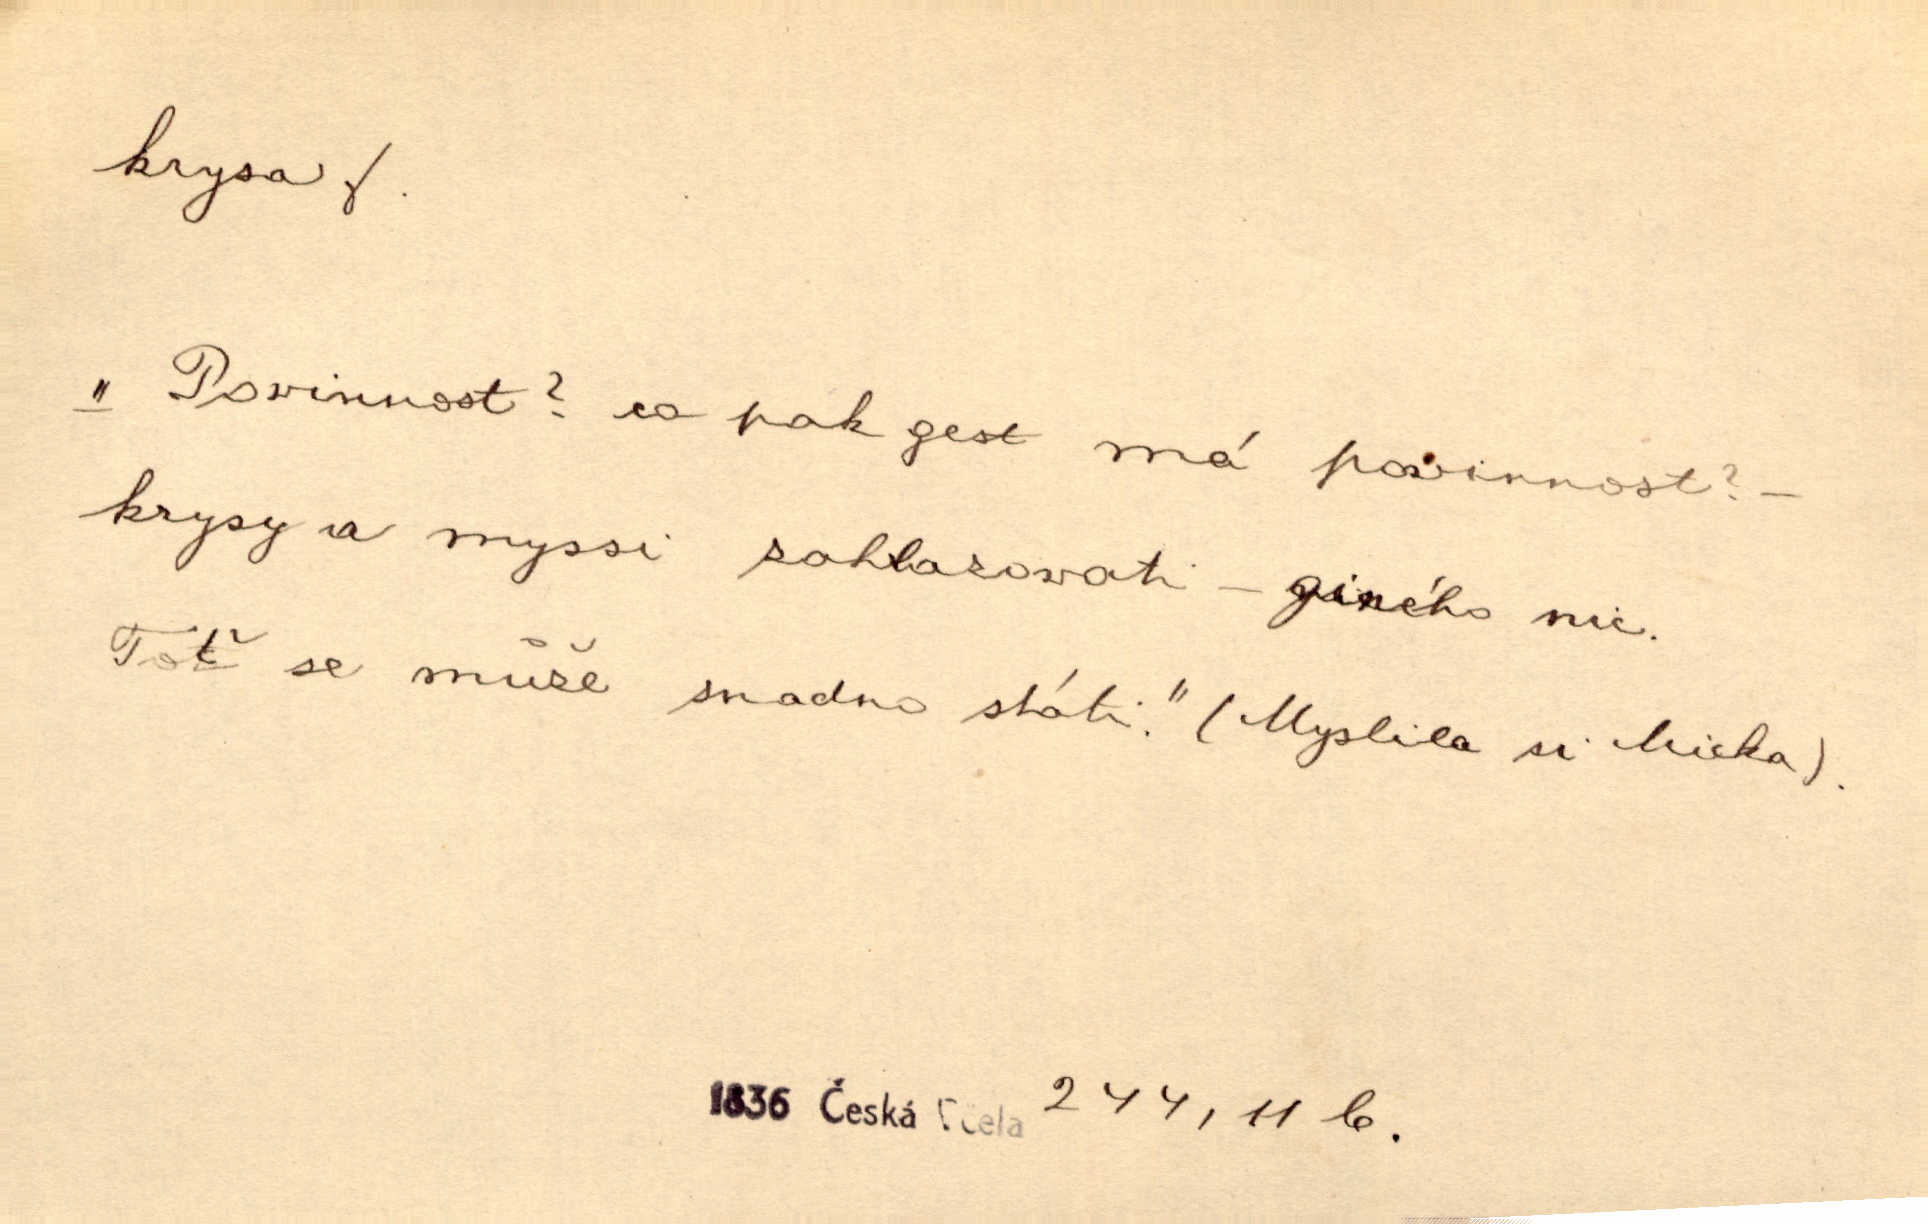 krysa f.
„Powinnost? co pak gest má powinnost? –
krysy a myssi zahlazowati – giného nic.
Toť se může snadno státi." (Myslila si Micka).
1836 Česká Včela 244, 11 b.